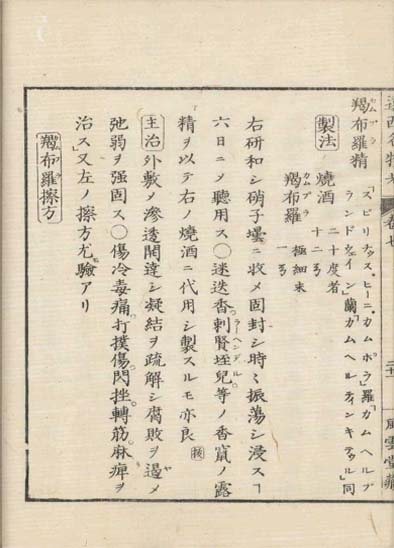 遠西名物考 卷七 二十一 風雲堂藏
羯布羅精 「スピリチュス、ヒーニ、カムポラ」羅「カムヘルブ
ランドウェイン」蘭「カムヘルティンキテウル」同
製法 燒酒 二十度者 十二ゟ
羯布羅 カムプラ 極細末 一ゟ
右研和シ硝子壜ニ收メ固封シ時々振蕩シ浸スヿ
六日ニメ聽用ス〇迷迭香剌賢埊兒等ノ香竄ノ露
精ヲ以テ右ノ燒酒ニ代用シ製スルモ亦良
主治 外敷メ滲透開達シ凝結ヲ疏解シ腐敗ヲ遏メ
弛弱ヲ强固ス〇傷冷毒痛。打撲傷。閃挫。轉筋。麻痺ヲ
治ス」又左ノ擦方尤驗アリ
羯布羅擦方